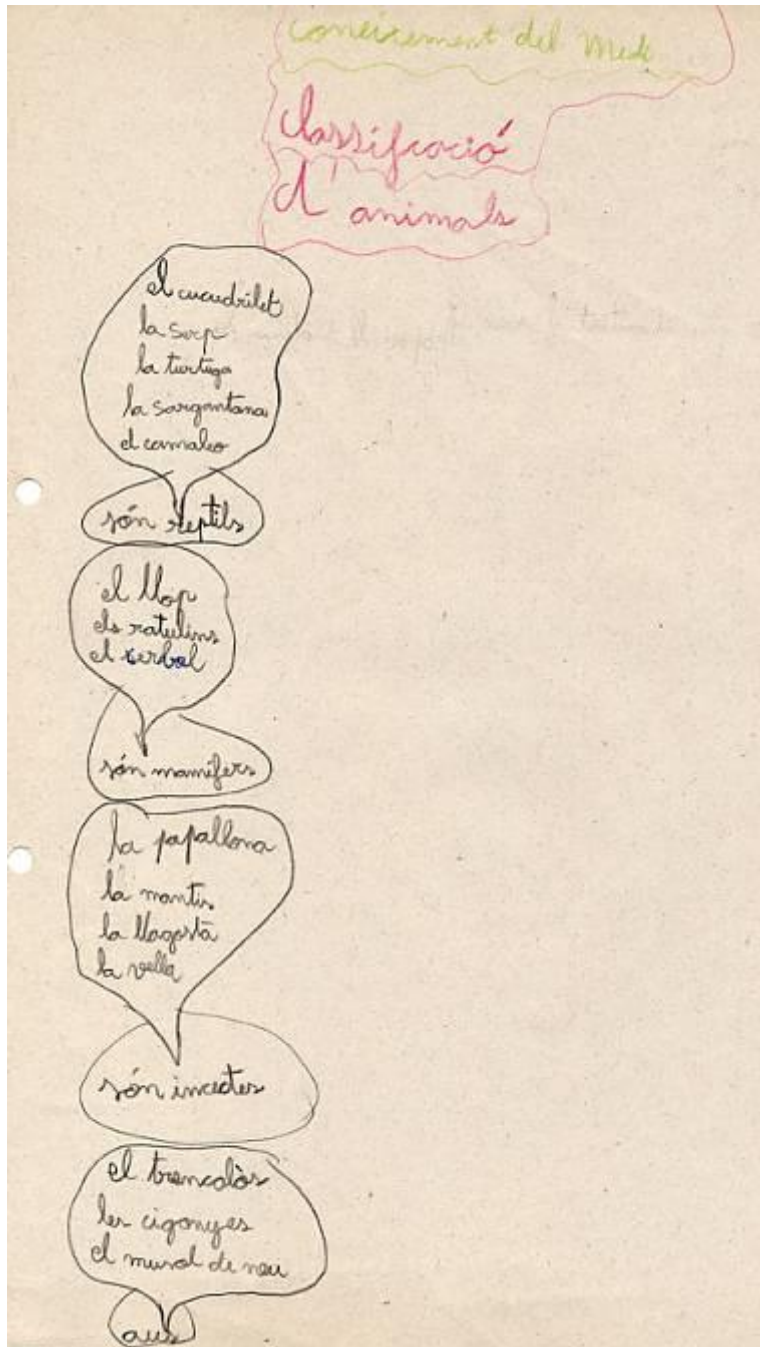 coneixement del Medi
classificació
d'animals
el cucudrilet
la serp
la turtuga
la sargantana
el camaleo
són reptils
el llop
els ratulins
el xerbol
són mamífers
la papallona
la mantis
la llagosta
la vella
són incectes
el trencalòs
les cigonyes
el musol de neu
aus